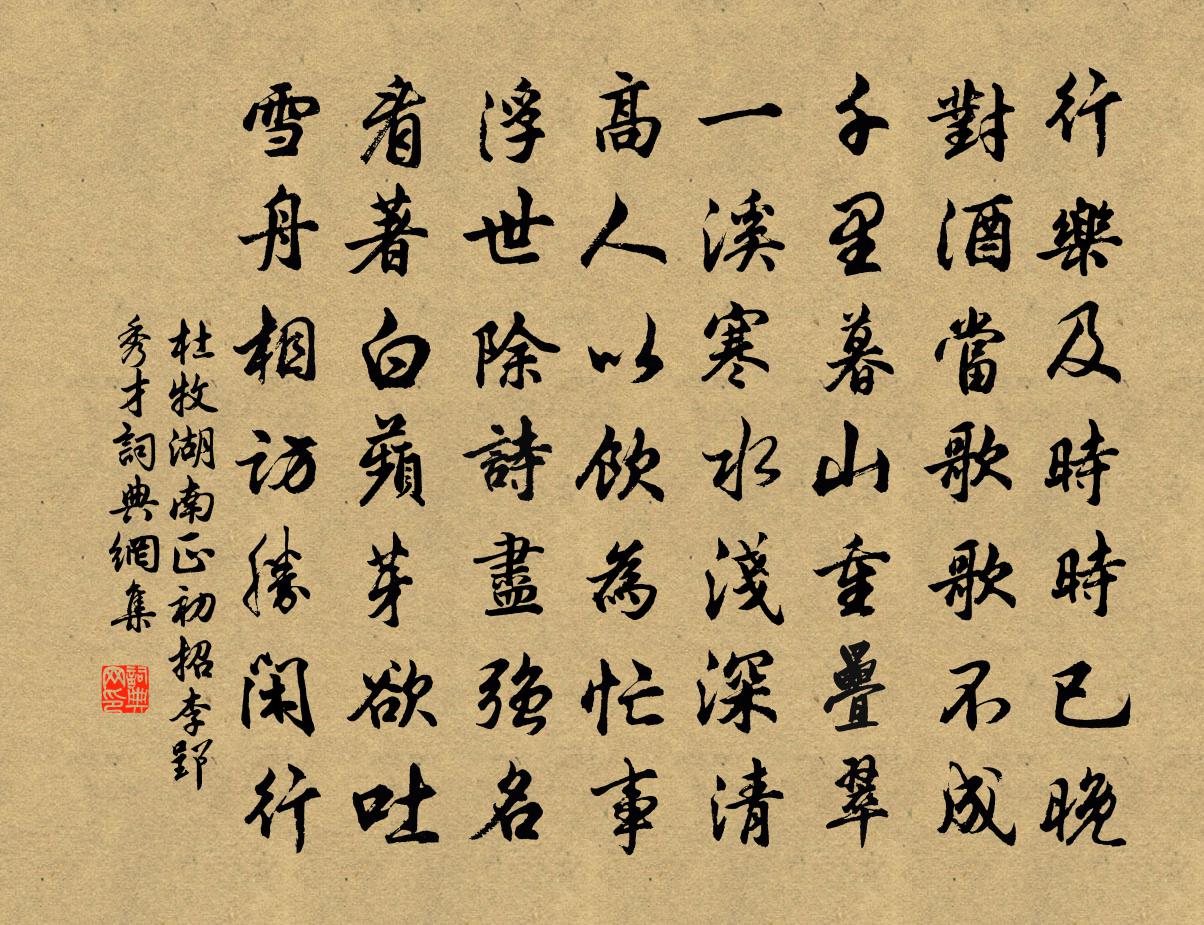 行樂及時時已晚
對酒當歌歌不成
千里暮山重疊翠
一溪寒水淺深清
高人以飲為忙事
浮世除詩盡強名
看著白蘋芽欲吐
雪舟相訪勝閑行
杜牧湖南正初招李郢
秀才詞典網集
詞典網印